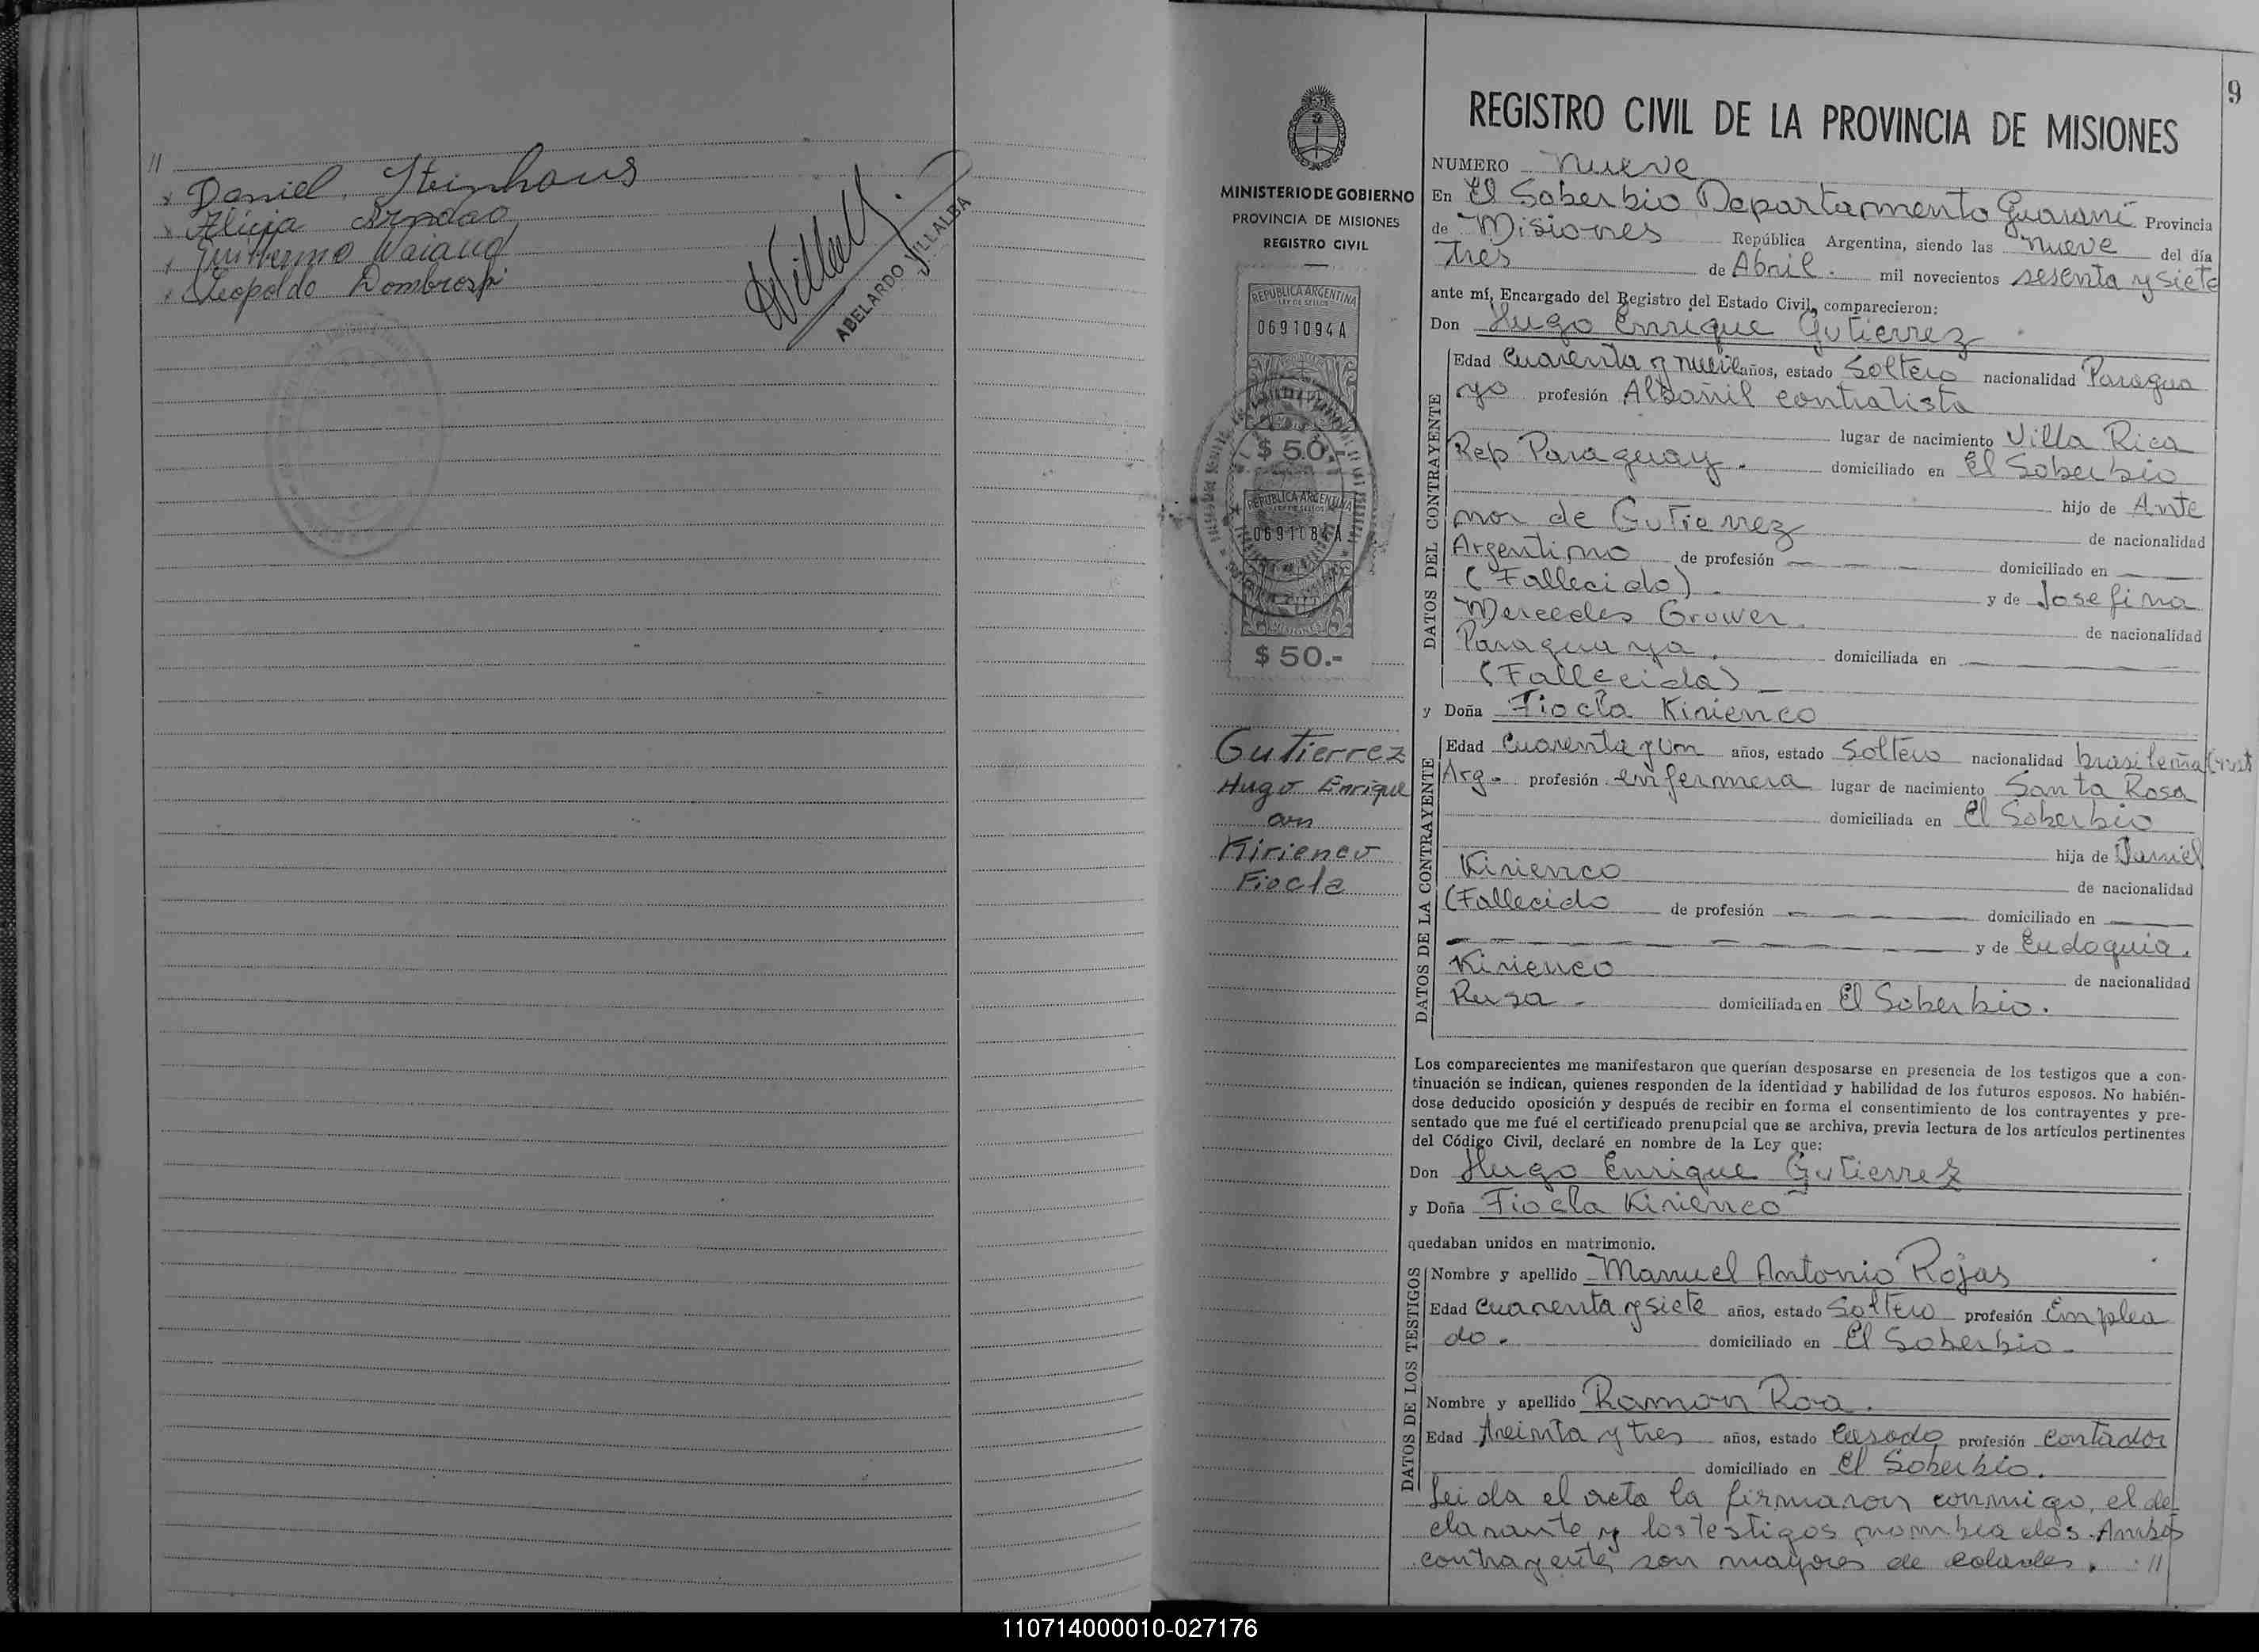 //
x Daniel. Steinhaus
x Alicia
x Guillermo
x Leopoldo Dombroski
ABELARDO VILLALBA
9
REGISTRO CIVIL DE LA PROVINCIA DE MISIONES
MINISTERIO DE GOBIERNO
PROVINCIA DE MISIONES
REGISTRO CIVIL
REPUBLICA ARGENTINA
LEY DE SELLOS
0691094A
$ 50.-
REPUBLICA ARGENTINA
0691084A
MISIONES
$ 50.-
Gutierrez
Hugo Enrique
con
Kirienco
Fiocla
NUMERO nueve
En El Soberbio Departamento Guaraní Provincia
de Misiones República Argentina, siendo las nueve del día
tres de Abril. mil novecientos sesenta y siete
ante mí, Encargado del Registro del Estado Civil, comparecieron:
Don Hugo Enrique Gutierrez
DATOS DEL CONTRAYENTE
Edad Cuarenta y nueve años, estado Soltero nacionalidad Paragua
yo profesión Albañil contratista
lugar de nacimiento Villa Rica
Rep Paraguay. domiciliado en El Soberbio
hijo de Ante
nor de Gutierrez de nacionalidad
Argentino de profesión — — — domiciliado en — —
(Fallecido). y de Josefina
Mercedes Grower. de nacionalidad
Paraguaya. domiciliada en — — —
(Fallecida) –
y Doña Fiocla Kirienco
DATOS DE LA CONTRAYENTE
Edad Cuarenta y un años, estado Soltero nacionalidad brasileña
Arg. profesión enfermera lugar de nacimiento Santa Rosa
domiciliada en El Soberbio
hija de Daniel
Kirienco de nacionalidad
(Fallecido de profesión — — — domiciliado en — —
— — — — — — — y de Eudoquia.
Kirienco de nacionalidad
Rusa - domiciliada en El Soberbio.
Los comparecientes me manifestaron que querían desposarse en presencia de los testigos que a con-
tinuación se indican, quienes responden de la identidad y habilidad de los futuros esposos. No habién-
dose deducido oposición y después de recibir en forma el consentimiento de los contrayentes y pre-
sentado que me fué el certificado prenupcial que se archiva, previa lectura de los artículos pertinentes
del Código Civil, declaré en nombre de la Ley que:
Don Hugo Enrique Gutierrez
y Doña Fiocla Kirienco
quedaban unidos en matrimonio.
DATOS DE LOS TESTIGOS
Nombre y apellido Manuel Antonio Rojas
Edad cuarenta y siete años, estado Soltero profesión Emplea
do. domiciliado en El Soberbio.
Nombre y apellido Ramon Roa.
Edad treinta y tres años, estado Casado profesión contador
domiciliado en El Soberbio.
Leida el acta la firmaron conmigo, el de-
clarante y los testigos nombrados. Ambos
contrayente son mayores de edades. //
110714000010-027176